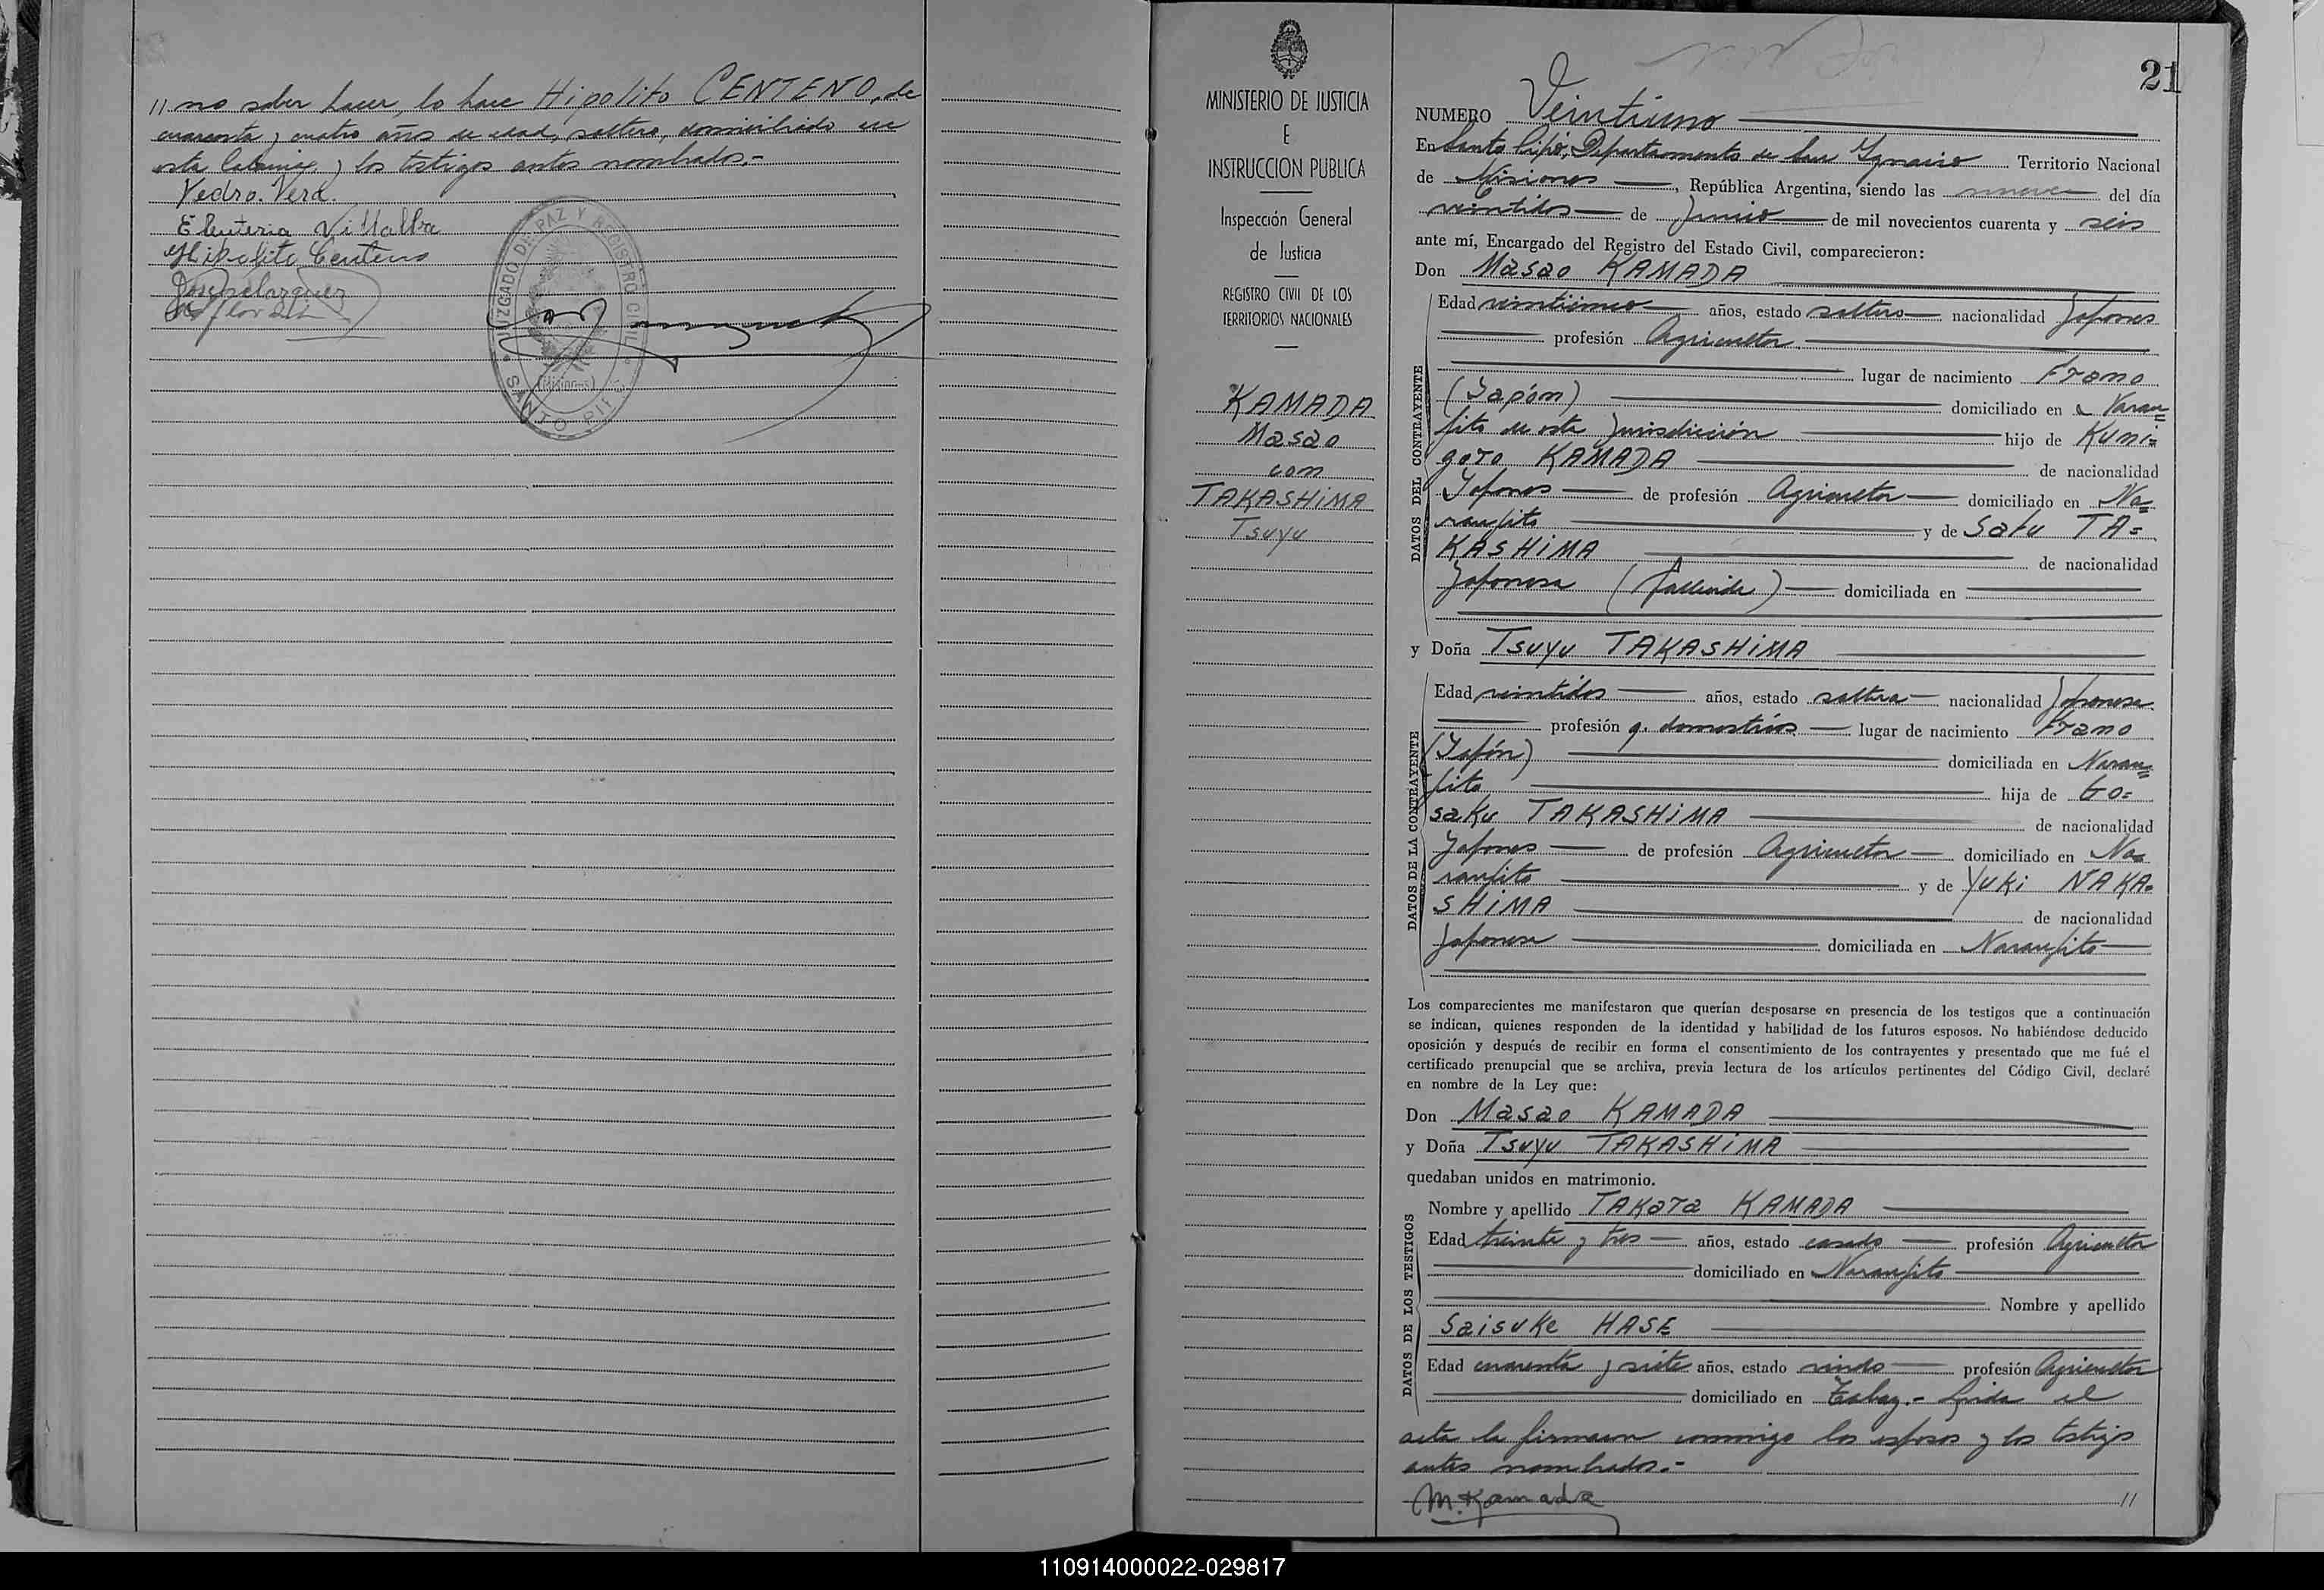 // no saber hacer lo hace Hipolito CENTENO, de
cuarenta y cuatro años de edad, soltero, domiciliado en
esta Colonia, y los testigos antes nombrados.-
Pedro. Vera.
Eleuteria Villalba
Hipolito Centeno
JUZGADO DE PAZ Y REGISTRO CIVIL
(Misiones)
SANTO PIPÓ
MINISTERIO DE JUSTICIA
E
INSTRUCCION PUBLICA
Inspección General
de Justicia
REGISTRO CIVIL DE LOS
TERRITORIOS NACIONALES
KAMADA
Masao
con
TAKASHIMA
Tsuyu
21
NUMERO Veintiuno
En Santo Pipó, Departamento de San Ignacio Territorio Nacional
de Misiones, República Argentina, siendo las nueve del día
veintidos de Junio de mil novecientos cuarenta y seis
ante mí, Encargado del Registro del Estado Civil, comparecieron:
Don Masao KAMADA
DATOS DEL CONTRAYENTE
Edad veinticinco años, estado soltero nacionalidad Japones
profesión Agricultor
lugar de nacimiento
(Japón) domiciliado en Naran=
jito de esta Jurisdicción hijo de Kuni=
goro KAMADA de nacionalidad
Japones de profesión Agricultor domiciliado en Na=
ranjito y de Satu TA=
KASHIMA de nacionalidad
Japonesa (fallecida) domiciliada en
y Doña Tsuyu TAKASHIMA
DATOS DE LA CONTRAYENTE
Edad veintidos años, estado soltera nacionalidad Japonesa
profesión q. domesticos lugar de nacimiento
(Japón) domiciliada en Naran=
jito hija de Go=
saku TAKASHIMA de nacionalidad
Japones de profesión Agricultor domiciliado en Na=
ranjito y de Yuki NAKA=
SHIMA de nacionalidad
Japonesa domiciliada en Naranjito
Los comparecientes me manifestaron que querían desposarse en presencia de los testigos que a continuación
se indican, quienes responden de la identidad y habilidad de los futuros esposos. No habiéndose deducido
oposición y después de recibir en forma el consentimiento de los contrayentes y presentado que me fué el
certificado prenupcial que se archiva, previa lectura de los artículos pertinentes del Código Civil, declaré
en nombre de la Ley que:
Don Masao KAMADA
y Doña Tsuyu TAKASHIMA
quedaban unidos en matrimonio.
DATOS DE LOS TESTIGOS
Nombre y apellido TAKARA KAMADA
Edad treinta y tres años, estado casado profesión Agricultor
domiciliado en Naranjito
Nombre y apellido
Saisuke HASE
Edad cuarenta y siete años, estado viudo profesión Agricultor
domiciliado en Tabay.- Leida el
acta la firmaron conmigo los esposos y los testigos
antes nombrados.-
M. Kamada //
110914000022-029817